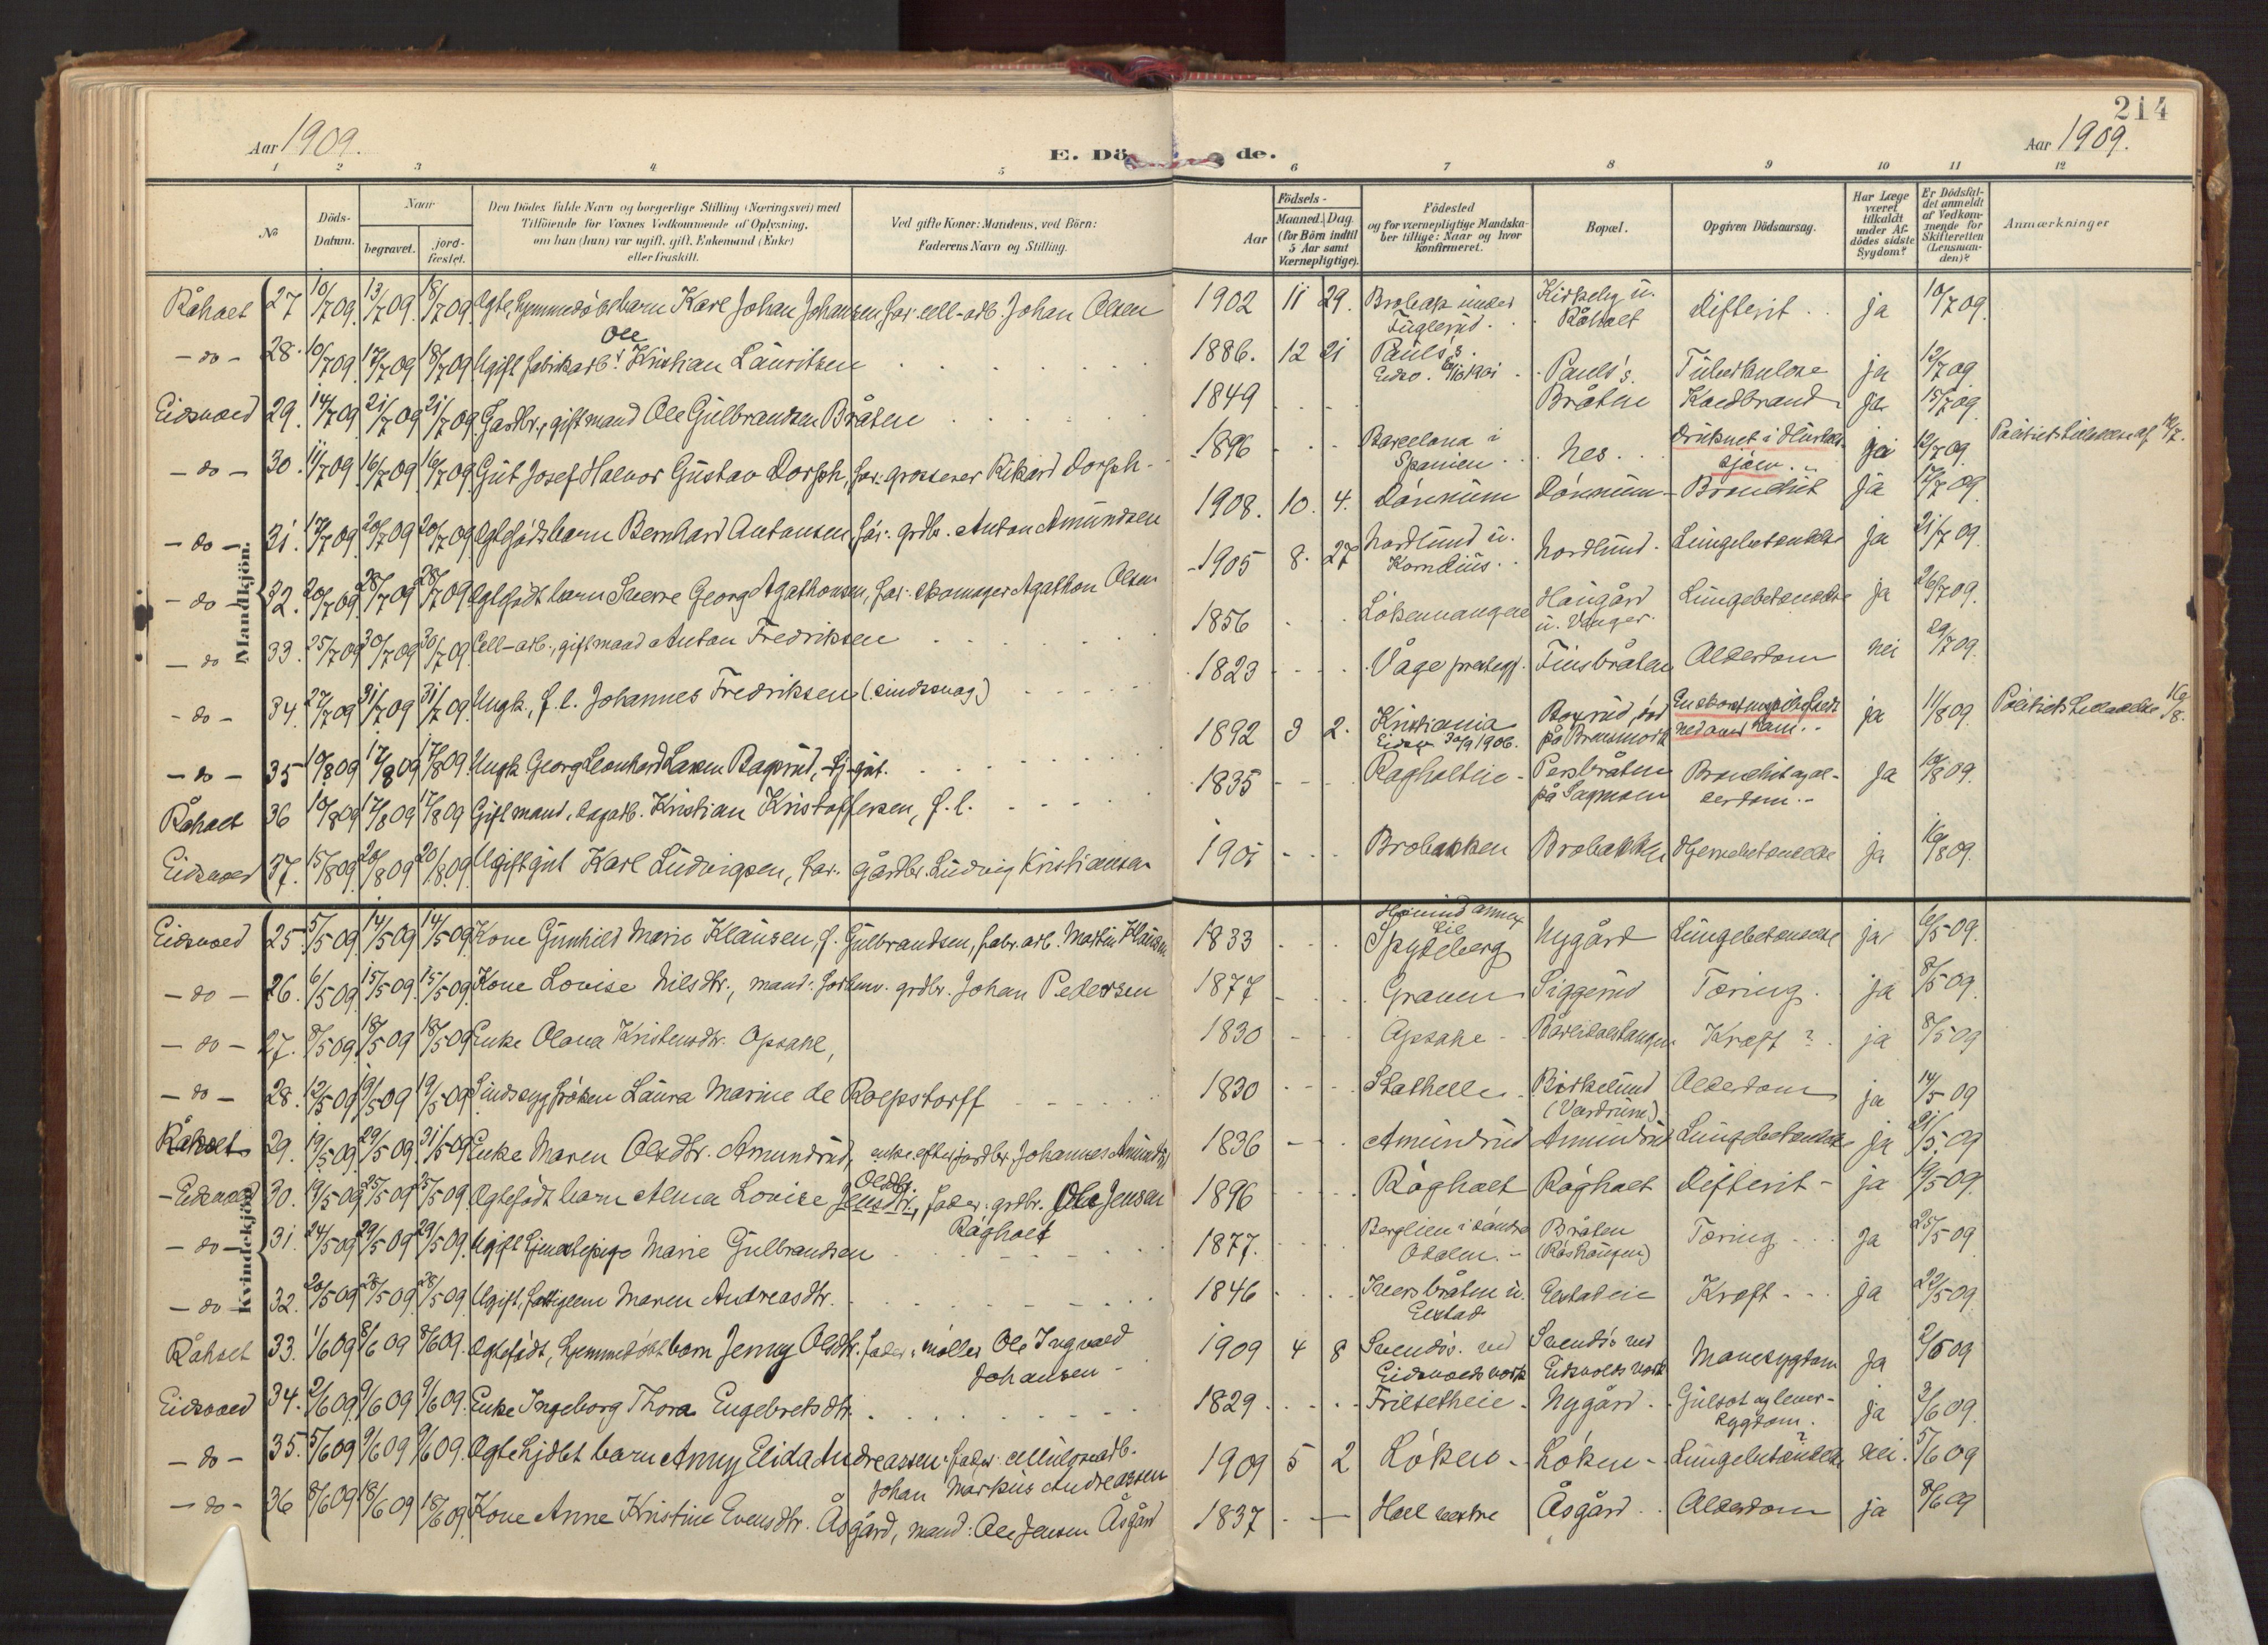 214
Aar 1909.
E. Dö de.
Aar 1909.
1 2 3 4 5 6 7 8 9 10 11 12
No
Döds-Datum.
Naar
begravet.
jord-fæstet.
Den Dödes fulde Navn og borgerlige Stilling (Næringsvei) med
Tilföiende for Voxnes Vedkommende af Oplysning,
om han (hun) var ugift, gift, Enkemand (Enke)
eller fraskilt.
Ved gifte Koner: Mandens, ved Börn:
Faderens Navn og Stilling.
Födsels-
Aar
Maaned. Dag.
(for Börn indtil
5 Aar samt
Værnepligtige).
Födested
og for værnepligtige Mandska-
ber tillige: Naar og hvor
konfirmeret.
Bopæl.
Opgiven Dödsaarsag.
Har Læge
været
tilkaldt
under Af-
dödes sidste
Sygdom?
Er Dödsfal-
det anmeldt
af Vedkom-
mende for
Skifteretten
(Lensman-
den)?
Anmærkninger
Mandkjön.
Råholt 27 10/7 09. 13/7 09. 18/7 09. Ægte, hjemmedöbt barn Karl Johan Johansen far: cell-arb. Johan Olsen 1902 11 29. Brobak under Fuglerud. Kirkeby u. Råholt Difterit ja 10/7 09.
- do - 28. 10/7 09 17/7 09 18/7 09 Ugift fabrikarb. Ole Kristian Lauritsen 1886. 12 21 Pauls's. Pauls's. Tuberkulose ja 12/7 09
Eidsvold 29. 14/7 09 21/7 09 21/7 09 Gardbr., gift mand Ole Gulbrandsen Bråten 1849 Bråten Koldbrand ja 15/7 09
- do - 30. 11/7 09 16/7 09 16/7 09 Gut Josef Halvor Gustav Dorph, far: grosserer Rikard Dorph 1896 Barcelona i Spanien Nes Druknet i Hurdalssjöen ja 12/7 09
- do - 31. 17/7 09 20/7 09 20/7 09 Ægtefödt barn Bernhard Antonsen, far: grdbr. Anton Amundsen 1908. 10. 4. Dönnum Dönnum Bronchit ja 17/7 09
- do - 32. 20/7 09 28/7 09 28/7 09 Ægtefödt barn Sverre Georg Agathonsen, far: skomager Agathon Olsen 1905 8. 27 Nordlund u. Nordlund. Lungebetændelse ja 21/7 09.
- do 33. 25/7 09 30/7 09 30/7 09 Cell-arb., gift mand Anton Fredriksen 1856 Lökenvangen Haugård u. Vanger. Lungebetændelse ja 26/7 09.
- do - 34. 27/7 09 31/7 09 31/7 09. Ungk., f. l. Johannes Fredriksen (sindssvag) 1823 Våge prestegj. Finsbråten Alderdom nei 29/7 09.
- do - 35 10/8 09 17/8 09 17/8 09. Ungk. Georg Leonhard Larsen Bagsrud 1892 9 2. Kristiania Eidsv. 30/9 1906. ja 11/8 09.
Råholt 36 10/8 09 17/8 09 17/8 09 Gift mand, dagarb. Kristian Kristoffersen, f. l. 1835 Ragholteie Persbråten på Sagmoen Bronchit og alderdom ja 10/8 09.
Eidsvold 37. 15/8 09 20/8 09 20/8 09. Ugift gut Karl Ludvigsen, far: gårdbr. Ludvig Kristiansen Brobakken Brobakken Hjernebetændelse ja 16/8 09.
Kvindekjön.
Eidsvold 25. 5/5 09 14/5 09 14/5 09 Kone Gunhild Marie Klausen, f. Gulbrandsen, fabr. arb. Martin Klausen 1833 annex til Spydeberg Nygård Lungebetændelse ja 6/5 09.
- do - 26. 6/5 09 15/5 09. 15/5 09. Kone Lovise Nilsdtr., mand: forhenv. grdbr. Johan Pedersen 1877 Graven Siggerud Tæring ja 8/5 09.
- do - 27. 8/5 09 18/5 09 18/5 09 Enke Olava Kristensdtr. Opsahl, 1830 Opsahl Kræft? ja 8/5 09
- do - 28. 12/5 09 19/5 09 19/5 09 Sindssyg fröken Laura Marine de Roepstorff 1830 Stathelle Birkelund Alderdom ja 14/5 09
Råholt 29. 19/5 09. 29/5 09. 31/5 09 Enke Maren Olsdtr. Amundrud, enke efter jordbr. Johannes Amundrud 1836 Amundrud Amundrud Lungebetændelse ja 21/5 09
- Eidsvold 30. 19/5 09 25/5 09 25/5 09 Ægtefödt barn Alma Lovise Jensdtr. Olsdtr., fader: grdbr. Ole Jensen Rågholt 1896 Rågholt Rågholt Difterit - ja 19/5 09.
- do - 31. 24/5 09 29/5 09 29/5 09. Ugift tjenestepige Marie Gulbrandsen 1877. Berglien i söndre Odalen Bråten Tæring ja 25/5 09
- do - 32. 20/5 09 28/5 09 28/5 09 Ugift, fattiglem Maren Andreasdtr. 1846 Kræft ja 22/5 09.
Råholt 33. 1/6 09 8/6 09 8/6 09. Ægtefödt, hjemmedöbt barn Jenny Olsdtr. fader: möller Ole Ingvald Johansen - 1909 4 8 Svendsö. ved Eidsvolds verk Svendsö ved Eidsvolds verk Mavesygdom ja 2/6 09
Eidsvold 34. 2/6 09 9/6 09 9/6 09. Enke Ingeborg Thora Engebretsdtr. 1829 Frilsetheie Nygård. Gulsot og leversygdom. ja 3/6 09.
- do - 35. 5/6 09 9/6 09 9/6 09. Ægte hjdöbt barn Anny Elida Andreassen, fader: cellulosearb. Johan Markus Andreassen 1909 5 2 Löken Löken Lungebetændelse? nei. 5/6 09
- do - 36 8/6 09 18/6 09 18/6 09. Kone Anne Kristine Evensdtr. Åsgård, mand: Ole Jensen Åsgård 1837 Hoel vestre Åsgård Alderdom ja 8/6 09